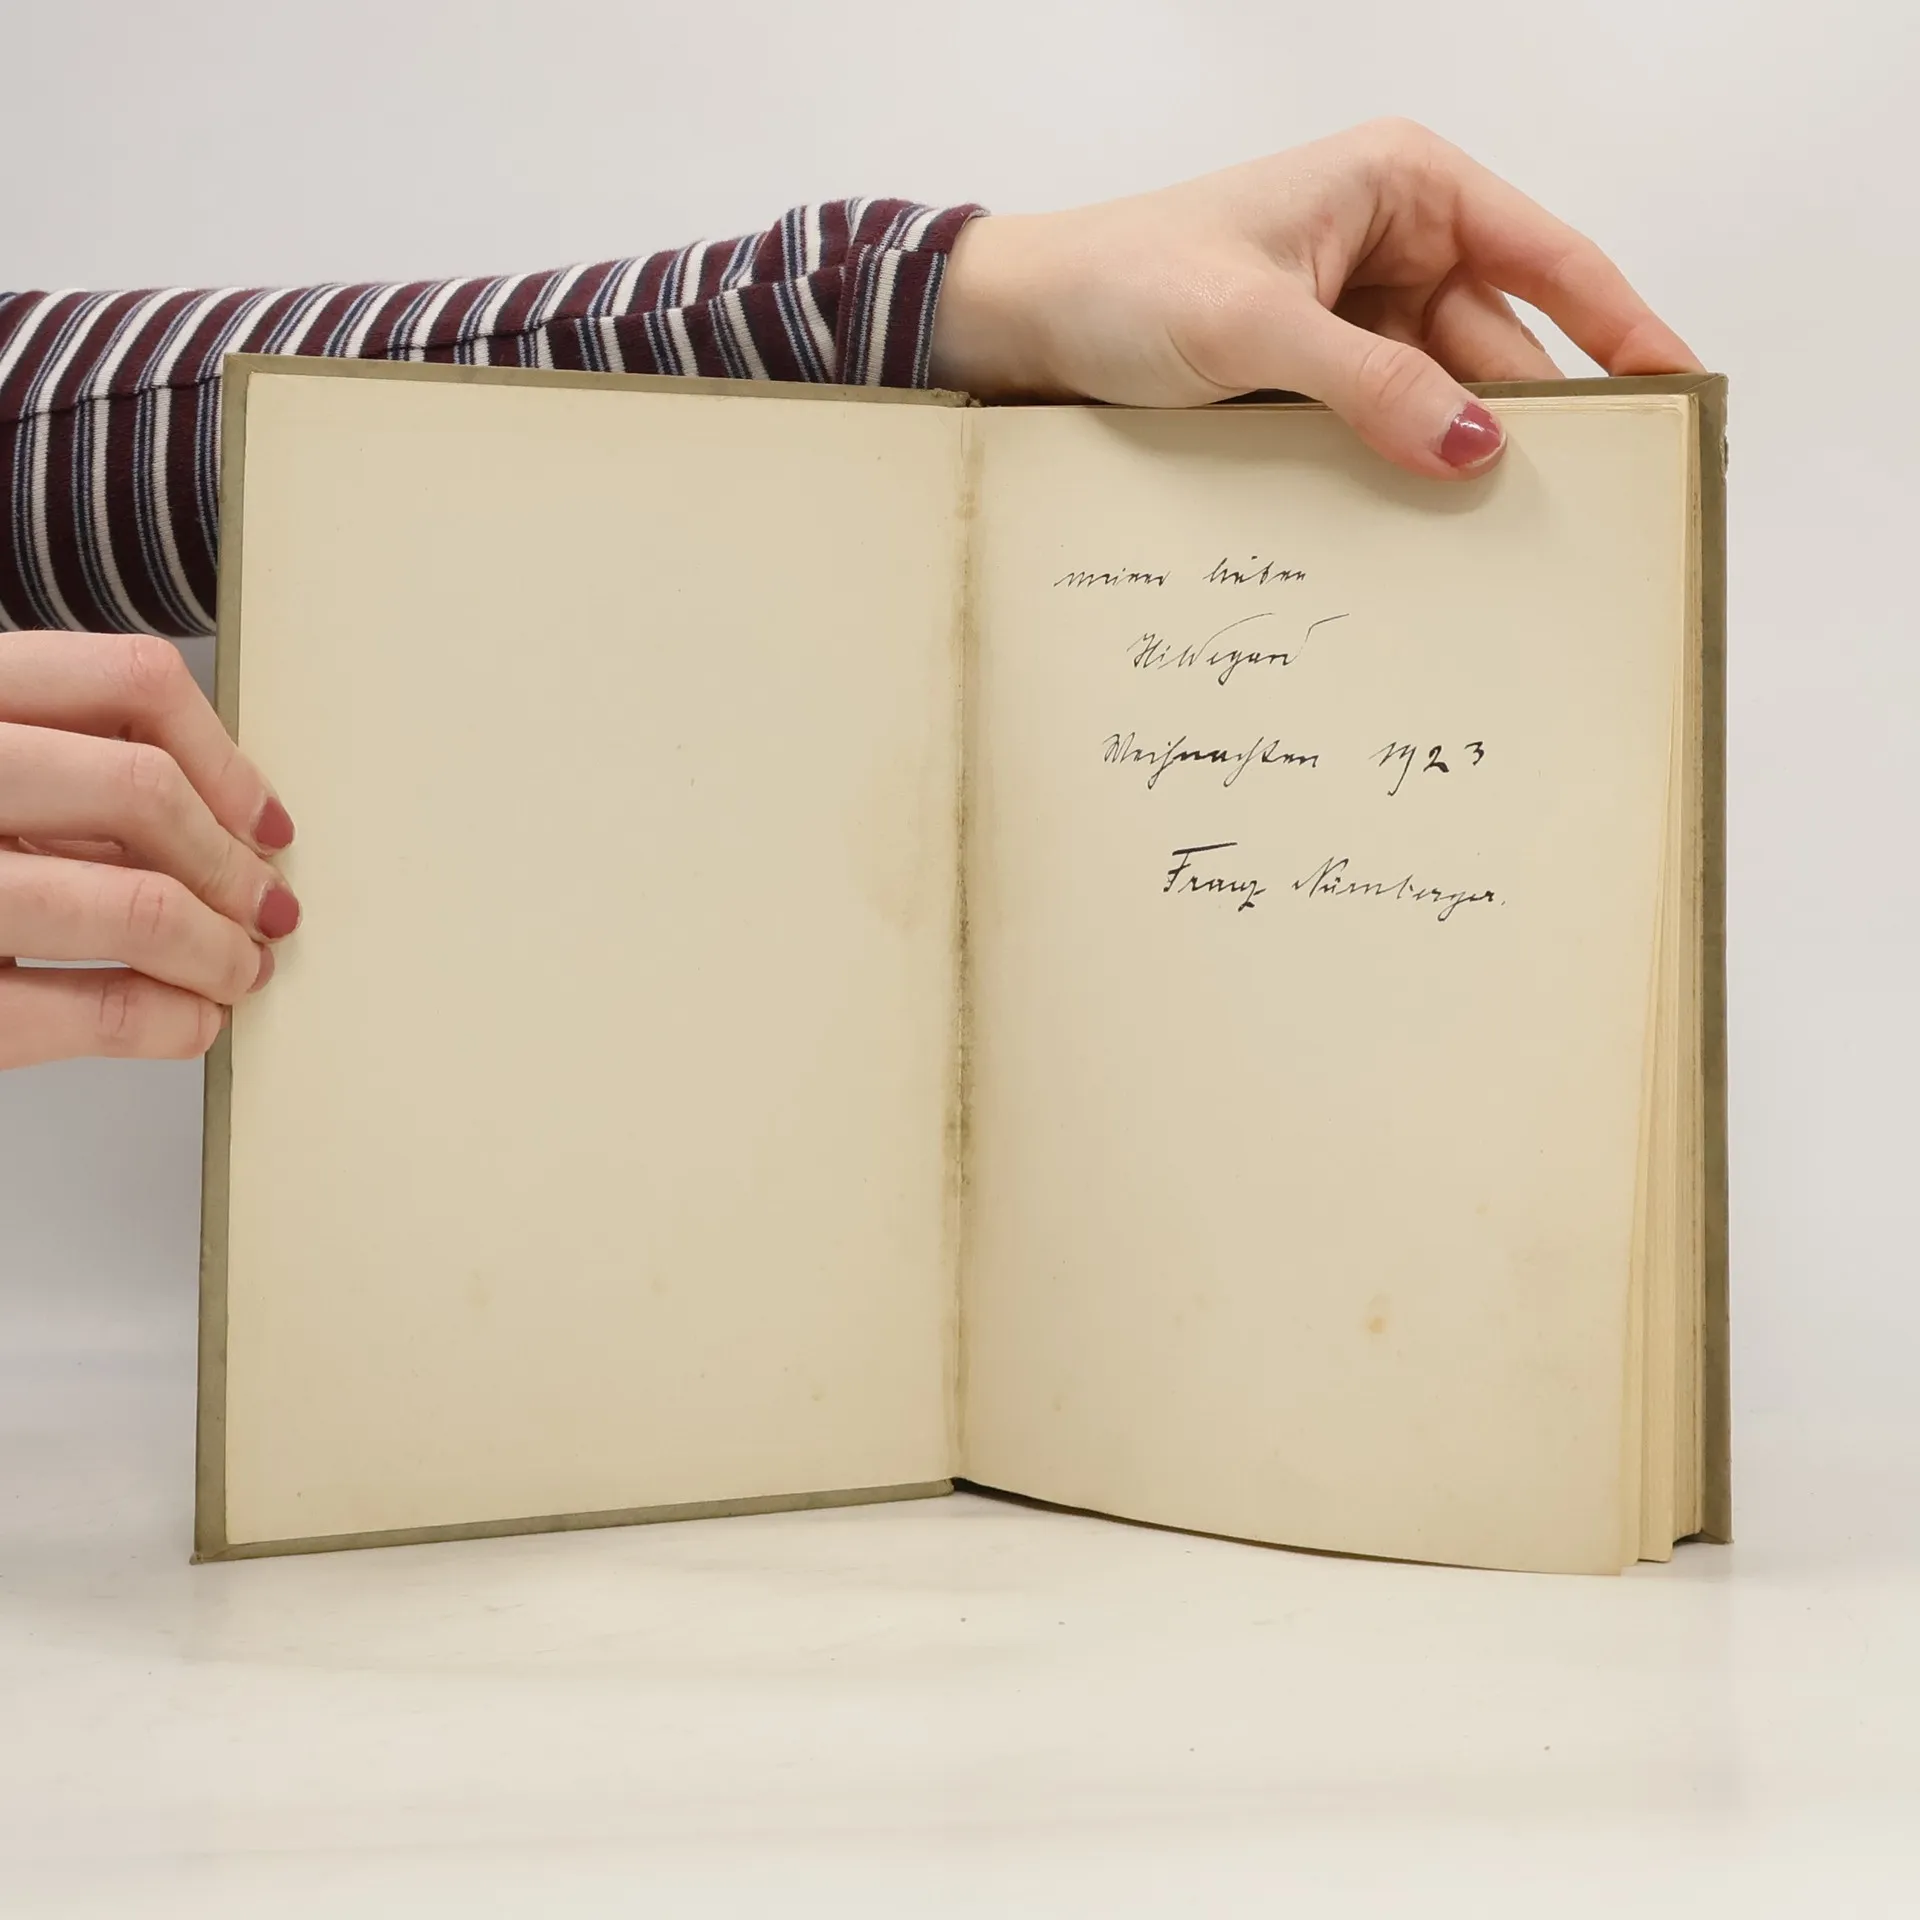 meiner lieben
Hildegard
Weihnachten 1923
Franz Nürnberger.